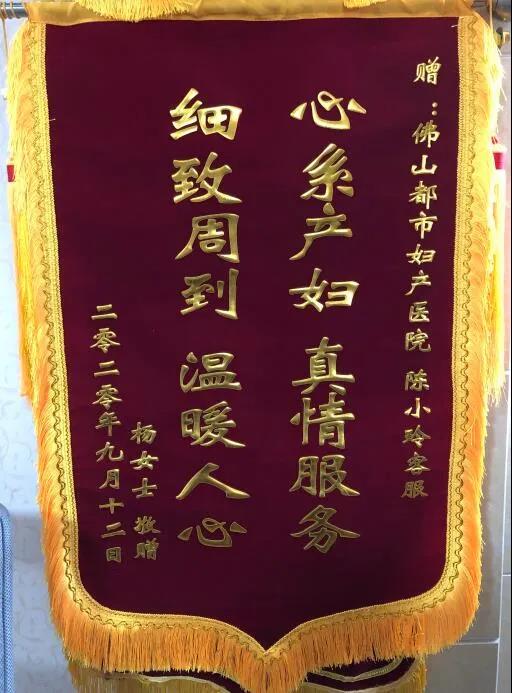 赠：佛山都市妇产医院 陈小玲客服
心系产妇 真情服务
细致周到 温暖人心
杨女士 敬赠
二零二零年九月十二日